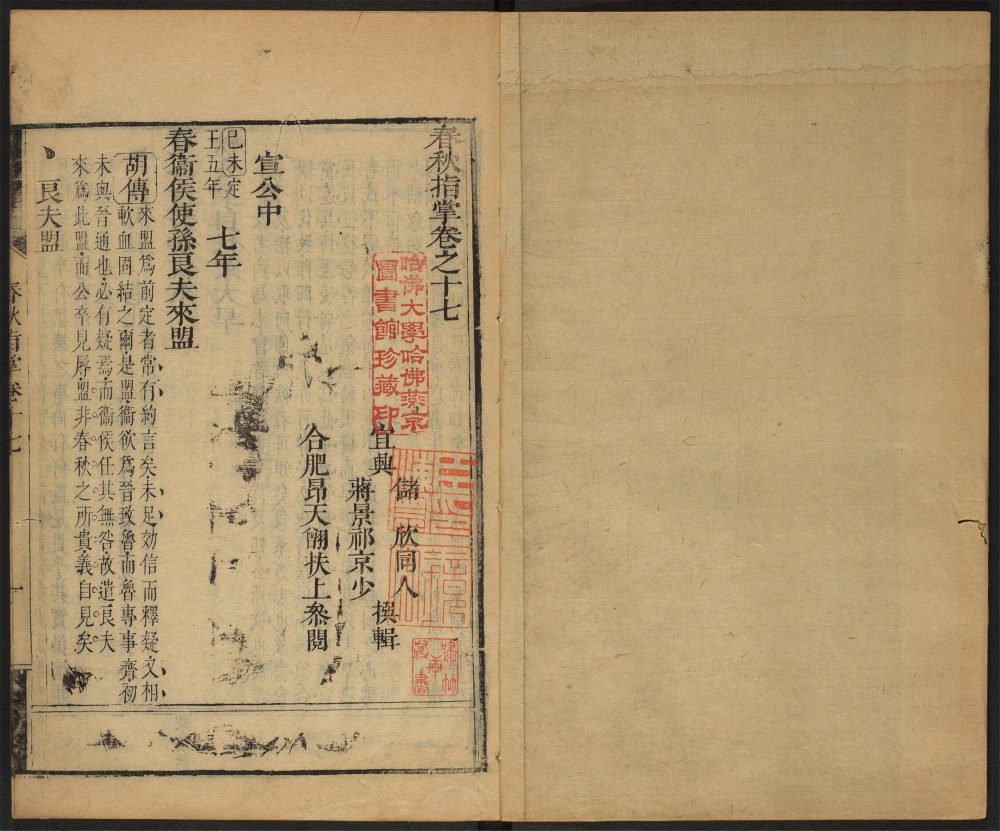 春秋指掌卷之十七
宜興
儲欣同人
蔣景祁京少
撰輯
合肥昂天翮扶上參閱
宣公中
己未定
王五年
七年
春衞侯使孫良夫來盟
胡傳
來盟爲前定者常有約言矣未足効信而釋疑又相
歃血固結之爾是盟衞欲爲晉致魯而魯專事齊初
未與晉通也必有疑焉而衞侯任其無咎故遣良夫
來爲此盟而公卒見辱盟非春秋之所貴義自見矣
良夫盟
春秋指掌卷十七
一
哈佛大學哈佛燕京
圖書館珍藏印